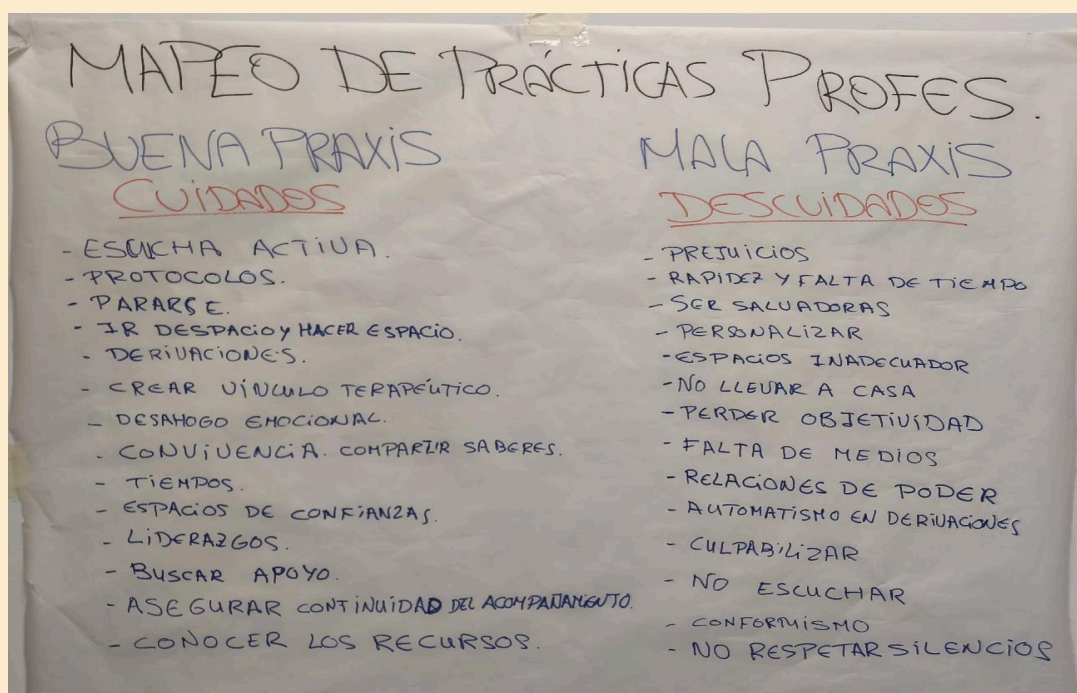 MAPEO DE PRÁCTICAS PROFES.
BUENA PRAXIS
CUIDADOS
- ESCUCHA ACTIVA.
- PROTOCOLOS.
- PARARSE.
- IR DESPACIO Y HACER ESPACIO.
- DERIVACIONES.
- CREAR VÍNCULO TERAPÉUTICO.
- DESAHOGO EMOCIONAL.
- CONVIVENCIA. COMPARTIR SABERES.
- TIEMPOS.
- ESPACIOS DE CONFIANZAS.
- LIDERAZGOS.
- BUSCAR APOYO.
- ASEGURAR CONTINUIDAD DEL ACOMPAÑAMIENTO.
- CONOCER LOS RECURSOS.
MALA PRAXIS
DESCUIDADOS
- PREJUICIOS
- RAPIDEZ Y FALTA DE TIEMPO
- SER SALVADORAS
- PERSONALIZAR
- ESPACIOS INADECUADOR
- NO LLEVAR A CASA
- PERDER OBJETIVIDAD
- FALTA DE MEDIOS
- RELACIONES DE PODER
- AUTOMATISMO EN DERIVACIONES
- CULPABILIZAR
- NO ESCUCHAR
- CONFORMISMO
- NO RESPETAR SILENCIOS